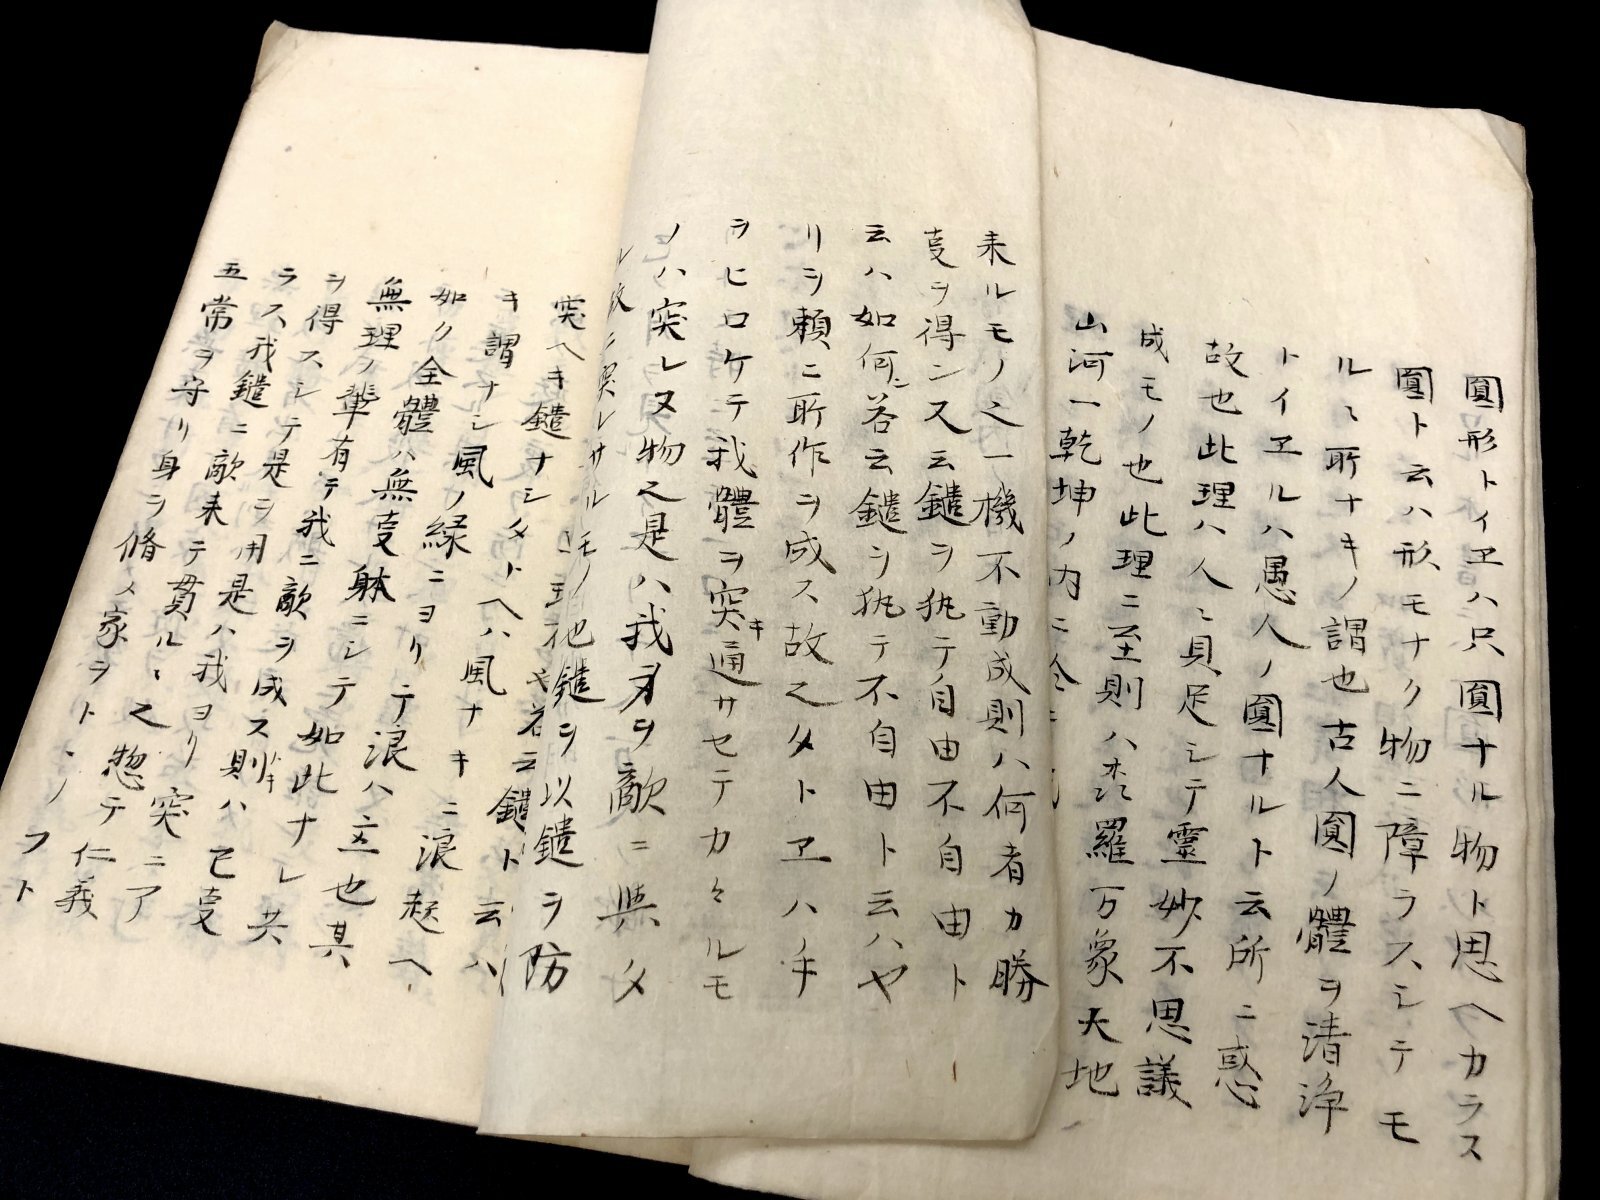 圓形トイヱハ只圓ナル物ト思ヘカラス
圓ト云ハ形モナク物ニ障ラスシテモ
ルヽ所ナキノ謂也古人圓ノ體ヲ清浄
トイヱルハ愚人ノ圓ナルト云所ニ惑
故也此理ハ人〻具足シテ靈妙不思議
成モノ也此理ニ至則ハ森羅万象天地
山河一乾坤ノ内ニ
来ルモノ之一機不動成則ハ何者カ勝
叓ヲ得ンヌ云鑓ヲ執テ自由不自由ト
云ハ如何ニ答云鑓ヲ執テ不自由ト云ハヤ
リヲ頼ニ所作ヲ成ス故之タトヱハ手
ヲヒロケテ我體ヲ突キ通サセテカヽルモ
ノハ突レヌ物之是ハ我身ヲ敵ニ與タ
ル故ニ突レサルモノ
他鑓ヲ以鑓ヲ防
突ヘキ鑓ナシタ 答云鑓ト云ハ
キ謂ナシ風ノ縁ニヨリテ浪ハ立也其
如ク全體ハ無叓躰ニシテ如此ナレ共
無理ノ輩有テ我ニ敵ヲ成ス則ハ已叓
ヲ得スシテ是ヲ用是ハ我ヨリ突ニア
ラス我鑓ニ敵来テ貫ルヽ之惣テ仁義
五常ヲ守リ身ヲ脩メ家ヲトヽノフト